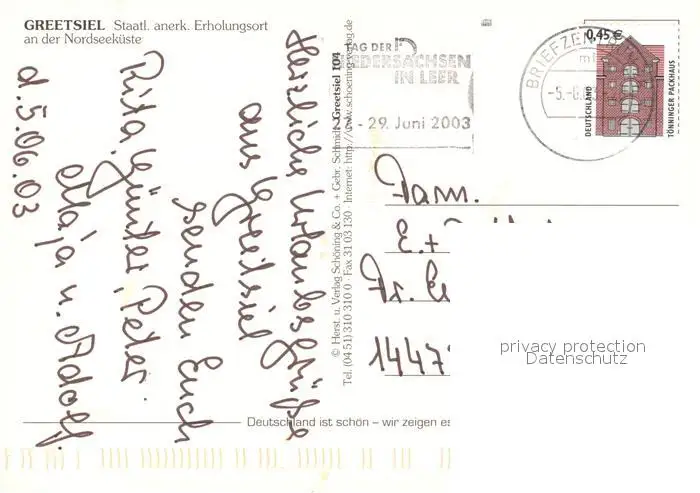 GREETSIEL Staatl. anerk. Erholungsort
an der Nordseeküste
Herzliche Urlaubsgrüße
aus Greetsiel
senden Euch
Rita, Günter, Peter,
Maja u. Adolf.
d. 5.06.03
© Herst. u. Verlag Schöning & Co. + Gebr. Schmidt Greetsiel 104
Tel. (04 51) 310 310 0 · Fax 31 03 130 · Internet: http://www.schoening-verlag.de
TAG DER
NIEDERSACHSEN
IN LEER
- 29. Juni 2003
BRIEFZENTRUM
-5.-6.
0,45 €
DEUTSCHLAND
TÖNNINGER PACKHAUS
Fam.
E. +
Fr.
1447
privacy protection
Datenschutz
Deutschland ist schön – wir zeigen es